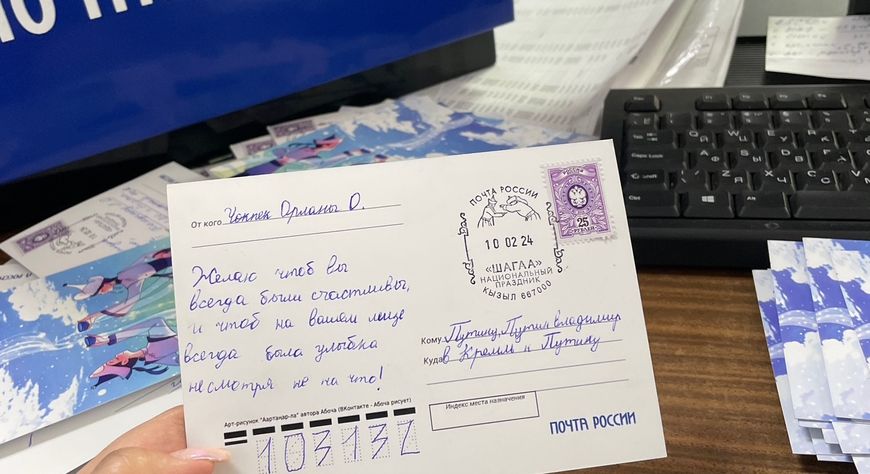 ПОЧТА РОССИИ
10 02 24
«ШАГАА»
НАЦИОНАЛЬНЫЙ
ПРАЗДНИК
КЫЗЫЛ 667000
РОССИЯ
25
РУБЛЕЙ
От кого Чоппек Орланы О.
Желаю чтоб вы
всегда были счастливы,
и чтоб на вашем лице
всегда была улыбка
несмотря не на что!
Кому Путину, Путин Владимир
Куда в Кремль к Путину
Индекс места назначения
ПОЧТА РОССИИ
Арт-рисунок "Аартанар-ла" автора Абоча (ВКонтакте - Абоча рисует)
103132
Caps Lock
Shift